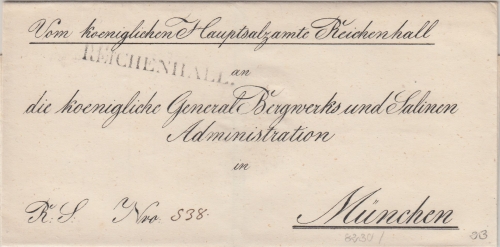 Vom koeniglichen Hauptsalzamte Reichenhall
REICHENHALL.
an
die koenigliche General Bergwerks und Salinen
Administration
in
R. S. Nro. 538.
München